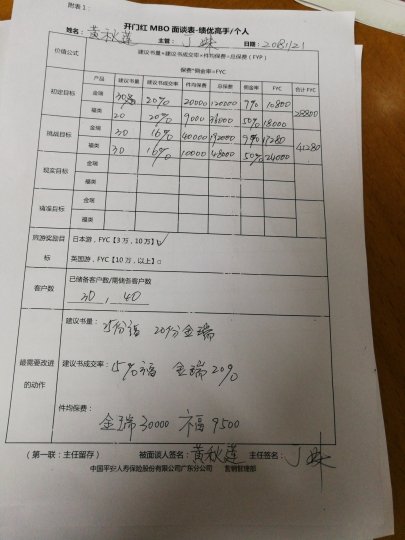 附表1：
开门红 MBO 面谈表-绩优高手/个人
姓名：黄秋莲 主管：丁姝 日期：
价值公式 建议书量×建议书成交率×件均保费=总保费（FYP）
保费*佣金率=FYC
产品 建议书量 建议书成交率 件均保费 总保费 佣金率 FYC 合计FYC
初定目标 金瑞 30 20% 20000 120000 9% 10800 28800
福类 20 20% 9000 36000 50% 18000
挑战目标 金瑞 30 16% 40000 192000 9% 17280 41280
福类 30 16% 10000 48000 50% 24000
现实目标 金瑞
福类
瞄准目标 金瑞
福类
旅游奖励目标 日本游，FYC【3万，10万】✓
英国游，FYC【10万，以上】□
客户数 已储备客户数/需储备客户数
30，40
最需要改进的动作
建议书量：
25份福 20份金瑞
建议书成交率：15%福 金瑞20%
件均保费：
金瑞30000 福9500
（第一联：主任留存） 被面谈人签名：黄秋莲 主任签名：丁姝
中国平安人寿保险股份有限公司广东分公司 营销管理部